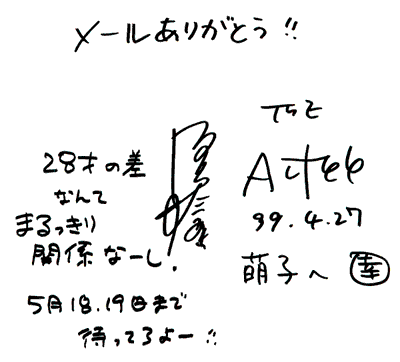 メールありがとう!!
28才の差
なんて
まるっきり
関係なーし!
5月18.19日まで
待ってるよー!!
THE
ALFEE
99.4.27
萌子へ 幸